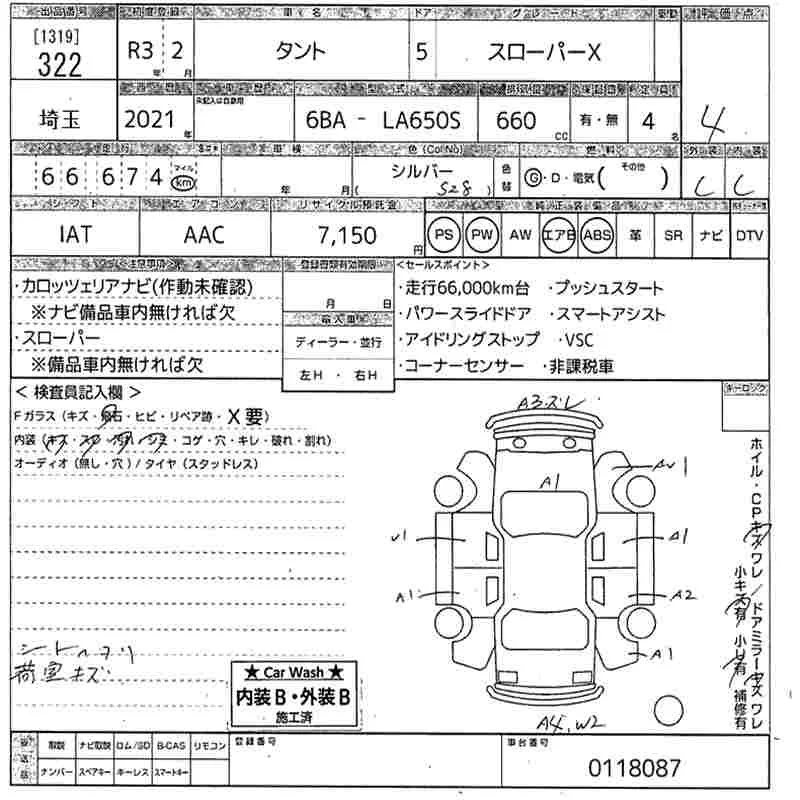 出品番号 初度登録 車名 ドア グレード 駆動 評価点
[1319]
322 R3 2 タント 5 スローパーX
年 月
西暦 車歴 型式 排気量 保証書 定員
未記入は自家用
埼玉 2021 6BA - LA650S 660 有・無 4 4
年 CC 名
走行 車検 色 (Col No) 燃料 外装 内装
66 674 マイル km 年 月 シルバー 色替 G・D・電気( その他 ) C C
( 528 )
シフト エアコン リサイクル預託金 純正装備品
IAT AAC 7,150 円 PS PW AW エアB ABS 革 SR ナビ DTV
注意事項 登録書類有効期限 <セールスポイント>
・カロッツェリアナビ(作動未確認) ・走行66,000km台 ・プッシュスタート
※ナビ備品車内無ければ欠 月 日 ・パワースライドドア ・スマートアシスト
・スローパー 輸入車 ・アイドリングストップ ・VSC
ディーラー・並行
※備品車内無ければ欠 ・コーナーセンサー ・非課税車
左H ・ 右H
< 検査員記入欄 > キーロック
Fガラス (キズ・飛石・ヒビ・リペア跡・X要)
内装 (キズ・スレ・汚れ・シミ・コゲ・穴・キレ・破れ・割れ)
オーディオ (無し・穴) / タイヤ (スタッドレス)
A3ズレ
AU1
A1
U1
A1
A1
A2
A1
A4,W2
ホイル・CPキズワレ / ドアミラーキズワレ
小キズ有 小U有 補修有
シートヘタリ
荷室キズ
★ Car Wash ★
内装B・外装B
施工済
後送品 取説 ナビ取説 ロム/SD B-CAS リモコン 登録番号 車台番号
ナンバー スペアキー キーレス スマートキー
0118087